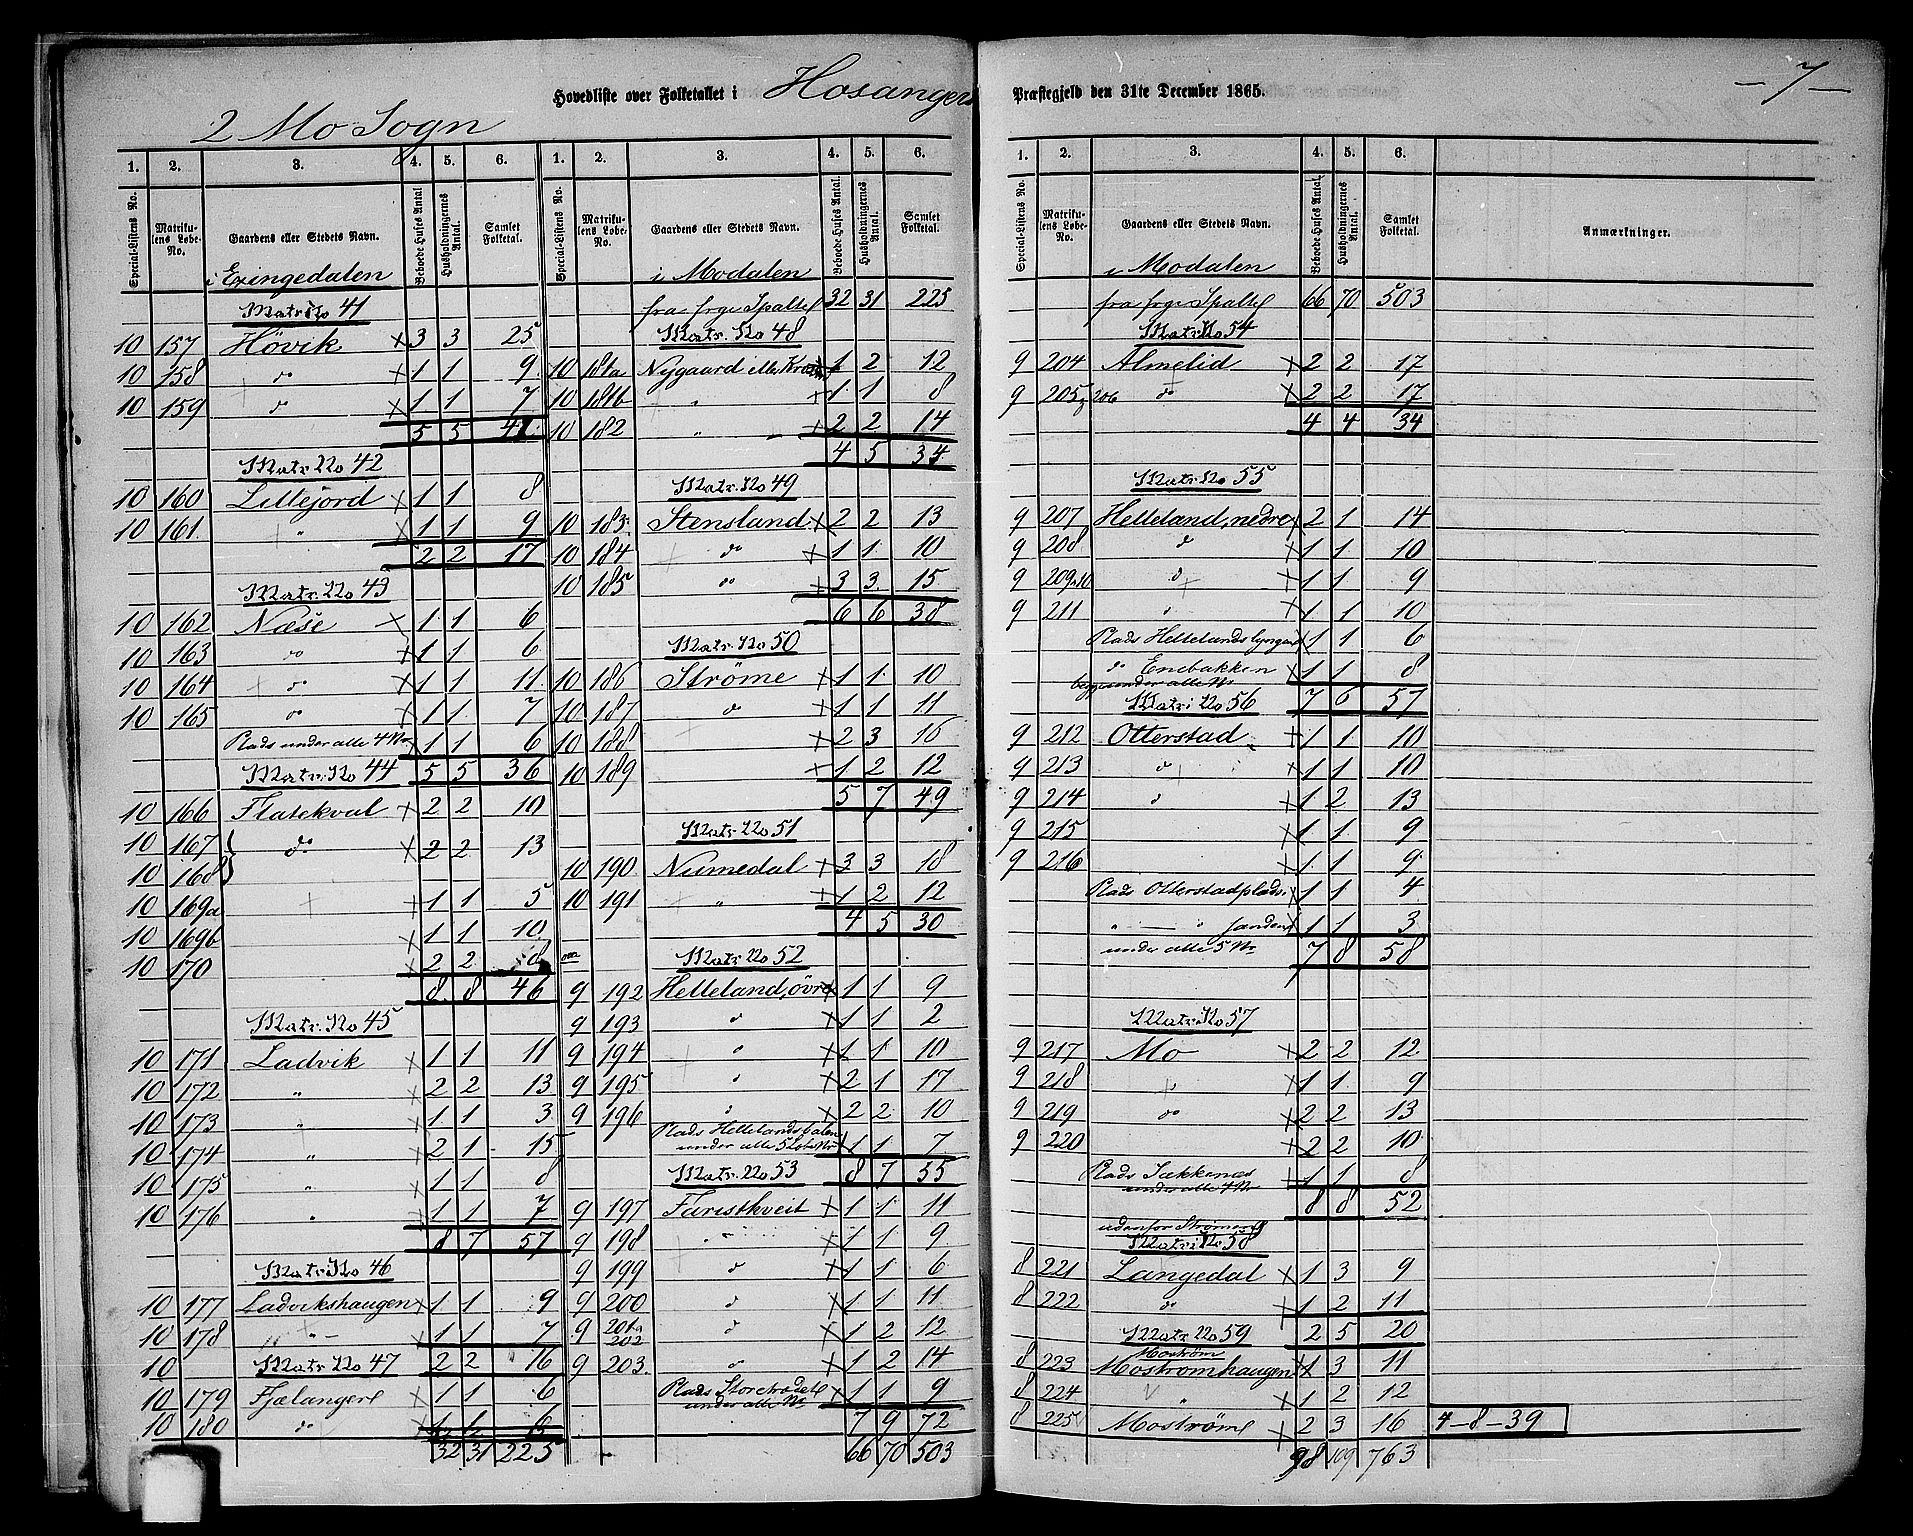 Hovedliste over Folketallet i Hosanger Præstegjeld den 31te December 1865. — 7 —
2 Mo Sogn
1. 2. 3. 4. 5. 6.
Special-Listens No. Matrikulens Løbe-No. Gaardens eller Stedets Navn. Beboede Huses Antal Husholdningernes Antal. Samlet Folketal.
i Exingedalen
Matr No 41
10 157 Hövik × 3 3 25
10 158 do × 1 1 9
10 159 do × 1 1 7
5 5 41
Matr No 42
10 160 Lillejord × 1 1 8
10 161. " × 1 1 9
2 2 17
Matr. No 43
10 162 Næse × 1 1 6
10 163 do × 1 1 6
10 164 do × 1 1 11
10 165 do × 1 1 7
Plads under alle 4 No × 1 1 6
Matr. No 44 5 5 36
10 166 Flatekval × 2 2 10
10 167 do × 2 2 13
10 168
10 169a 1 1 5
10 169b × 1 1 10
10 170 × 2 2 8
8 8 46
Matr. No 45
10 171 Ladvik × 1 1 11
10 172 " × 2 2 13
10 173 × 1 1 3
10 174 " × 2 1 15
10 175 " × 1 1 8
10 176 " × 1 1 7
8 7 57
Matr. No 46
10 177 Ladvikshaugen × 1 1 9
10 178 " × 1 1 7
10 Matr No 47 2 2 16
10 179 Fjælangere × 1 1 6
10 180 do
32 31 225
1. 2. 3. 4. 5. 6.
Special-Listens No. Matrikulens Løbe-No. Gaardens eller Stedets Navn. Beboede Huses Antal. Husholdningernes Antal. Samlet Folketal.
i Modalen
fra frge Spalte 32 31 225
Matr. No 48
10 181a Nygaard eller × 1 2 12
10 181b " × 1 1 8
10 182 " × 2 2 14
4 5 34
Matr. No 49
10 183. Stensland × 2 2 13
10 184 do × 1 1 10
10 185 do × 3 3 15
6 6 38
Matr. No 50
10 186 Ströme × 1 1 10
10 187 do × 1 1 11
10 188 × 2 3 16
10 189 × 1 2 12
5 7 49
Matr. No 51
10 190 Numedal × 3 3 18
10 191 " × 1 2 12
4 5 30
Matr. No 52
9 192 Helleland, övre × 1 1 9
9 193 do × 1 1 2
9 194 " × 1 1 10
9 195 " × 2 1 17
9 196 " × 2 2 10
Plads Hellelandsdalen
under alle 5 Løbe No × 1 1 7
Matr. No 53 8 7 55
9 197 Faristkveit × 1 1 11
9 198 " × 1 1 9
9 199 do × 1 1 6
9 200 do × 1 1 11
9 201 202 do × 1 2 12
9 203. do × 1 2 14
Plads
under alle No × 1 1 9
7 9 72
66 70 503
1. 2. 3. 4. 5. 6.
Special-Listens No. Matrikulens Løbe-No. Gaardens eller Stedets Navn. Beboede Huses Antal. Husholdningernes Antal. Samlet Folketal. Anmærkninger.
i Modalen
fra frge Spalte 66 70 503
Matr No 54
9 204 Almelid × 2 2 17
9 205, 206 do × 2 2 17
4 4 34
Matr. No 55
9 207 Helleland, nedre × 2 1 14
9 208 do × 1 1 10
9 209,10 do × 1 1 9
9 211 " × 1 1 10
Plads Hellelands × 1 1 6
do Enebakken × 1 1 8
begge under alle No
Matr No 56 7 6 57
9 212 Otterstad × 1 1 10
9 213 do × 1 1 10
9 214 do × 1 2 13
9 215 × 1 1 9
9 216 × 1 1 9
Plads Otterstadplads × 1 1 4
" — " Sanden × 1 1 3
under alle 5 No 7 8 58
Matr. No 57
9 217 Mo × 2 2 12
9 218 " × 1 1 9
9 219 do × 2 2 13
9 220 × 2 2 10
Plads Sækkenæs
under alle 4 No × 1 1 8
8 8 52
udenfor Strømmen
Matr No 58
8 221 Langedal × 1 3 9
8 222 do × 1 2 11
Matr No 59 2 5 20
Moström
8 223 Moströmhaugen × 1 3 11
8 224 " × 1 2 12
8 225 Moströme × 2 3 16 4–8–39
98 109 763